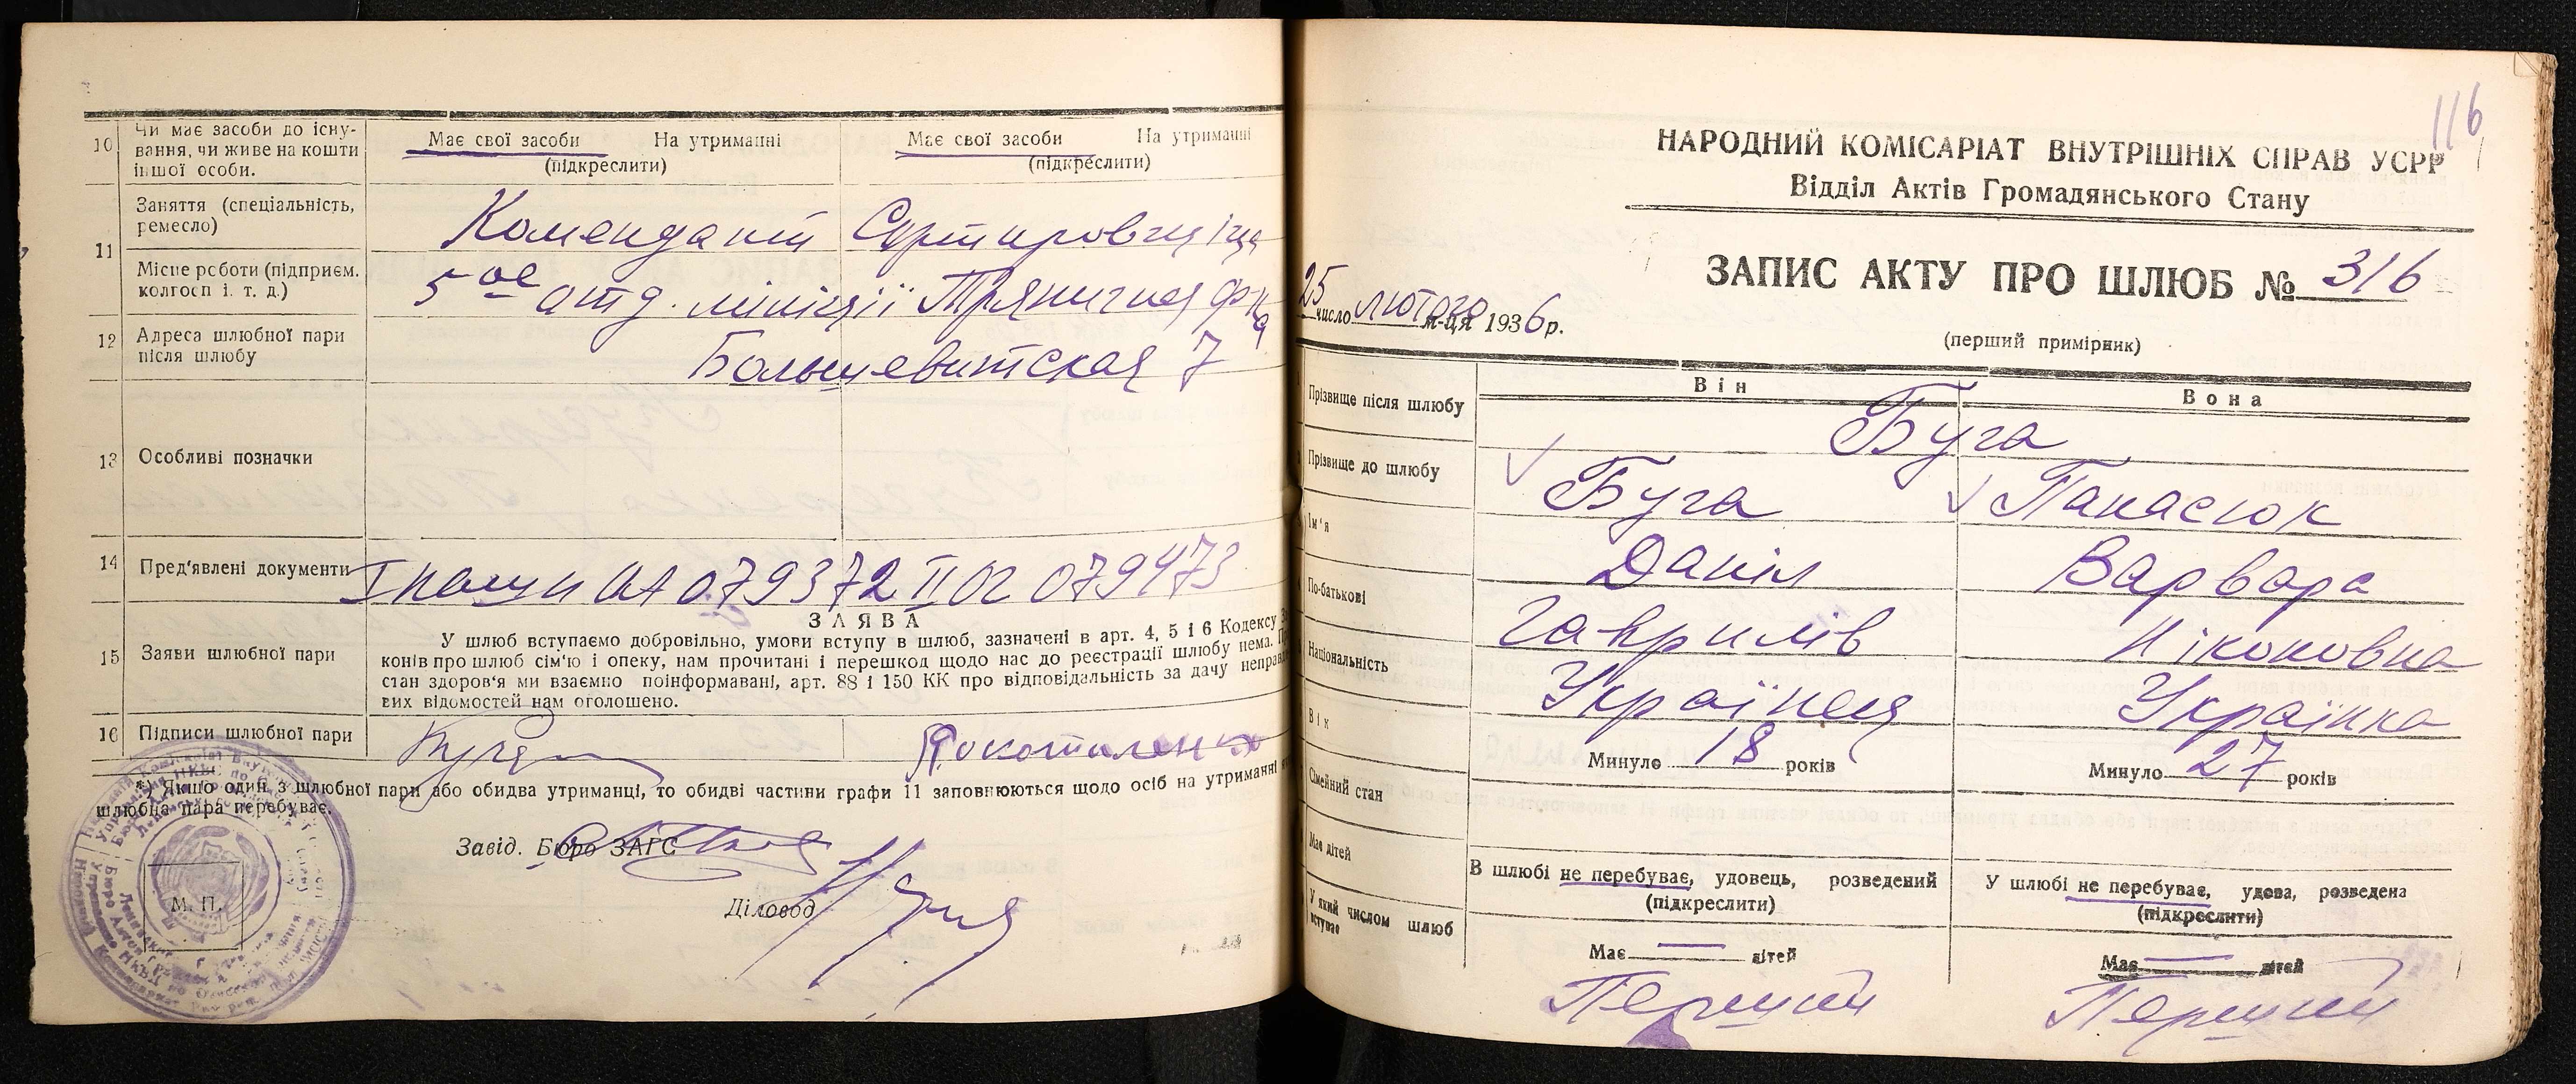 10 Чи має засоби до існу-
вання, чи живе на кошти
іншої особи.
Має свої засоби На утриманні
(підкреслити)
Має свої засоби На утриманні
(підкреслити)
11 Заняття (спеціальність,
ремесло)
Комендант
Місце роботи (підприєм.
колгосп і. т. д.)
5ое отд. міліції
12 Адреса шлюбної пари
після шлюбу
Большевитская 7
13 Особливі позначки
14 Пред'явлені документи
079372 II 079473
15 Заяви шлюбної пари
ЗАЯВА
У шлюб вступаємо добровільно, умови вступу в шлюб, зазначені в арт. 4, 5 і 6 Кодексу
конів про шлюб сім'ю і опеку, нам прочитані і перешкод щодо нас до реєстрації шлюбу нема.
стан здоров'я ми взаємно поінформавані, арт. 88 і 150 КК про відповідальність за дачу неправд
вих відомостей нам оголошено.
16 Підписи шлюбної пари
*) Якщо один з шлюбної пари або обидва утриманці, то обидві частини графи 11 заповнюються щодо осіб на утриманні
шлюбна пара перебуває.
Завід. Бюро ЗАГС
Діловод
М. П.
116
НАРОДНИЙ КОМІСАРІАТ ВНУТРІШНІХ СПРАВ УСРР
Відділ Актів Громадянського Стану
ЗАПИС АКТУ ПРО ШЛЮБ № 316
25 число лютого м-ця 1936 р.
(перший примірник)
Він Вона
Прізвище після шлюбу
Буга
Прізвище до шлюбу
Буга Панасюк
Ім'я
Даніл Варвара
По-батькові
Гаврилів Ніконовна
Національність
Українец Українка
Вік
Минуло 18 років
Минуло 27 років
Сімейний стан
В шлюбі не перебуває, удовець, розведений
(підкреслити)
У шлюбі не перебуває, удова, розведена
(підкреслити)
Має дітей
Має — дітей
Має — дітей
У який числом шлюб
вступає
Перший Перший